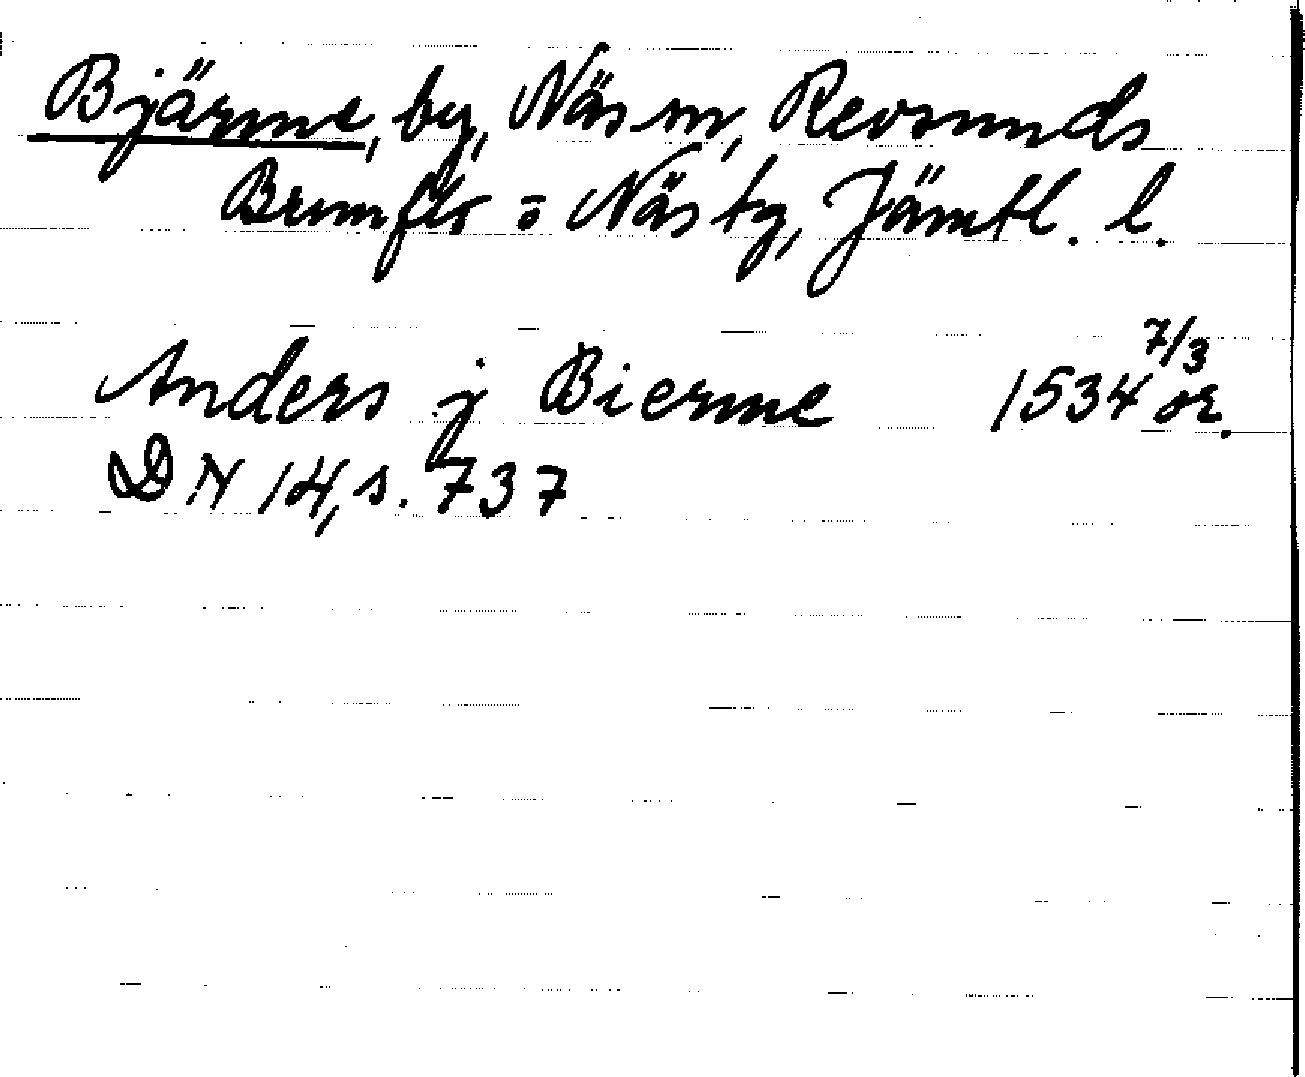 Bjärme, by, Näs sn, Revsunds
Brunflo o Näs tg, Jämtl. l.
Anders j Bierme 1534 7/3 or.
DN 14, s. 737